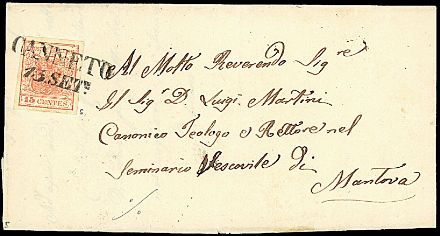 CANNETO
15. SETe
15 CENTES.
Al Molto Reverendo Sigre
Il Sigr D. Luigi Martini
Canonico Teologo e Rettore nel
Seminario Vescovile di
Mantova